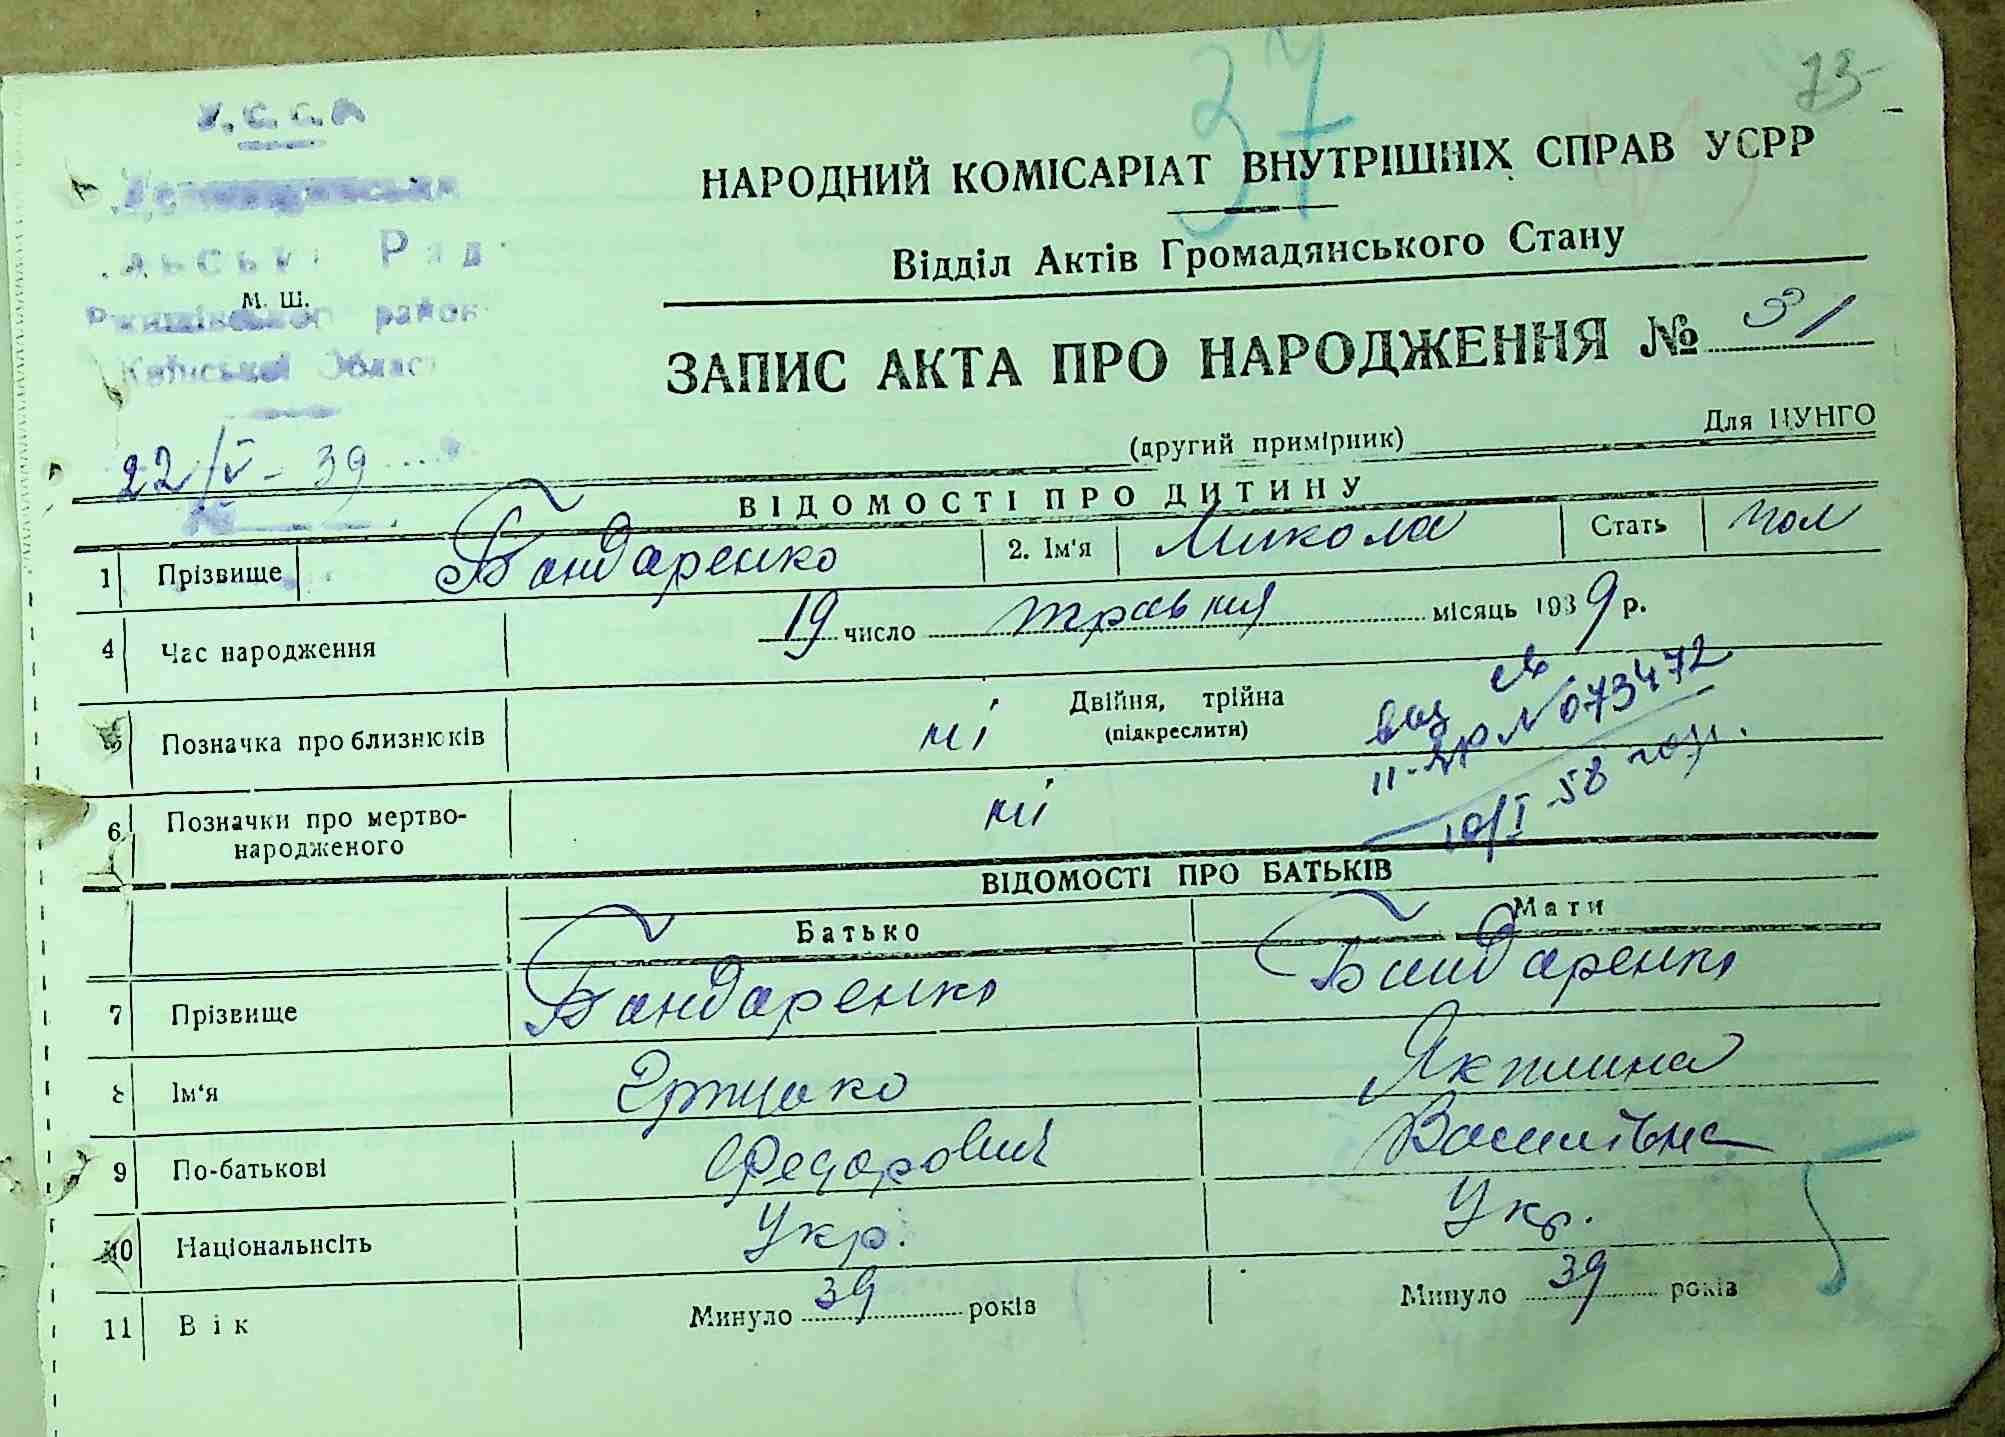 37
73
У.С.С.Р
Рад
М. Ш.
район
Київської Област
22/V - 39
НАРОДНИЙ КОМІСАРІАТ ВНУТРІШНІХ СПРАВ УСРР
Відділ Актів Громадянського Стану
ЗАПИС АКТА ПРО НАРОДЖЕННЯ № 31
(другий примірник) Для ЦУНГО
ВІДОМОСТІ ПРО ДИТИНУ
1 Прізвище Бондаренко 2. Ім'я Микола Стать чол
4 Час народження 19 число травня місяць 1939 р.
5 Позначка про близнюків ні Двійня, трійна (підкреслити)
6 Позначки про мертво-народженого ні
II-  № 073472
10/I-58
ВІДОМОСТІ ПРО БАТЬКІВ
Батько Мати
7 Прізвище Бондаренко Бондаренко
8 Ім'я Грицько Якилина
9 По-батькові Федорович Василівна
10 Національнсіть Укр. Укр.
11 Вік Минуло 39 років Минуло 39 років